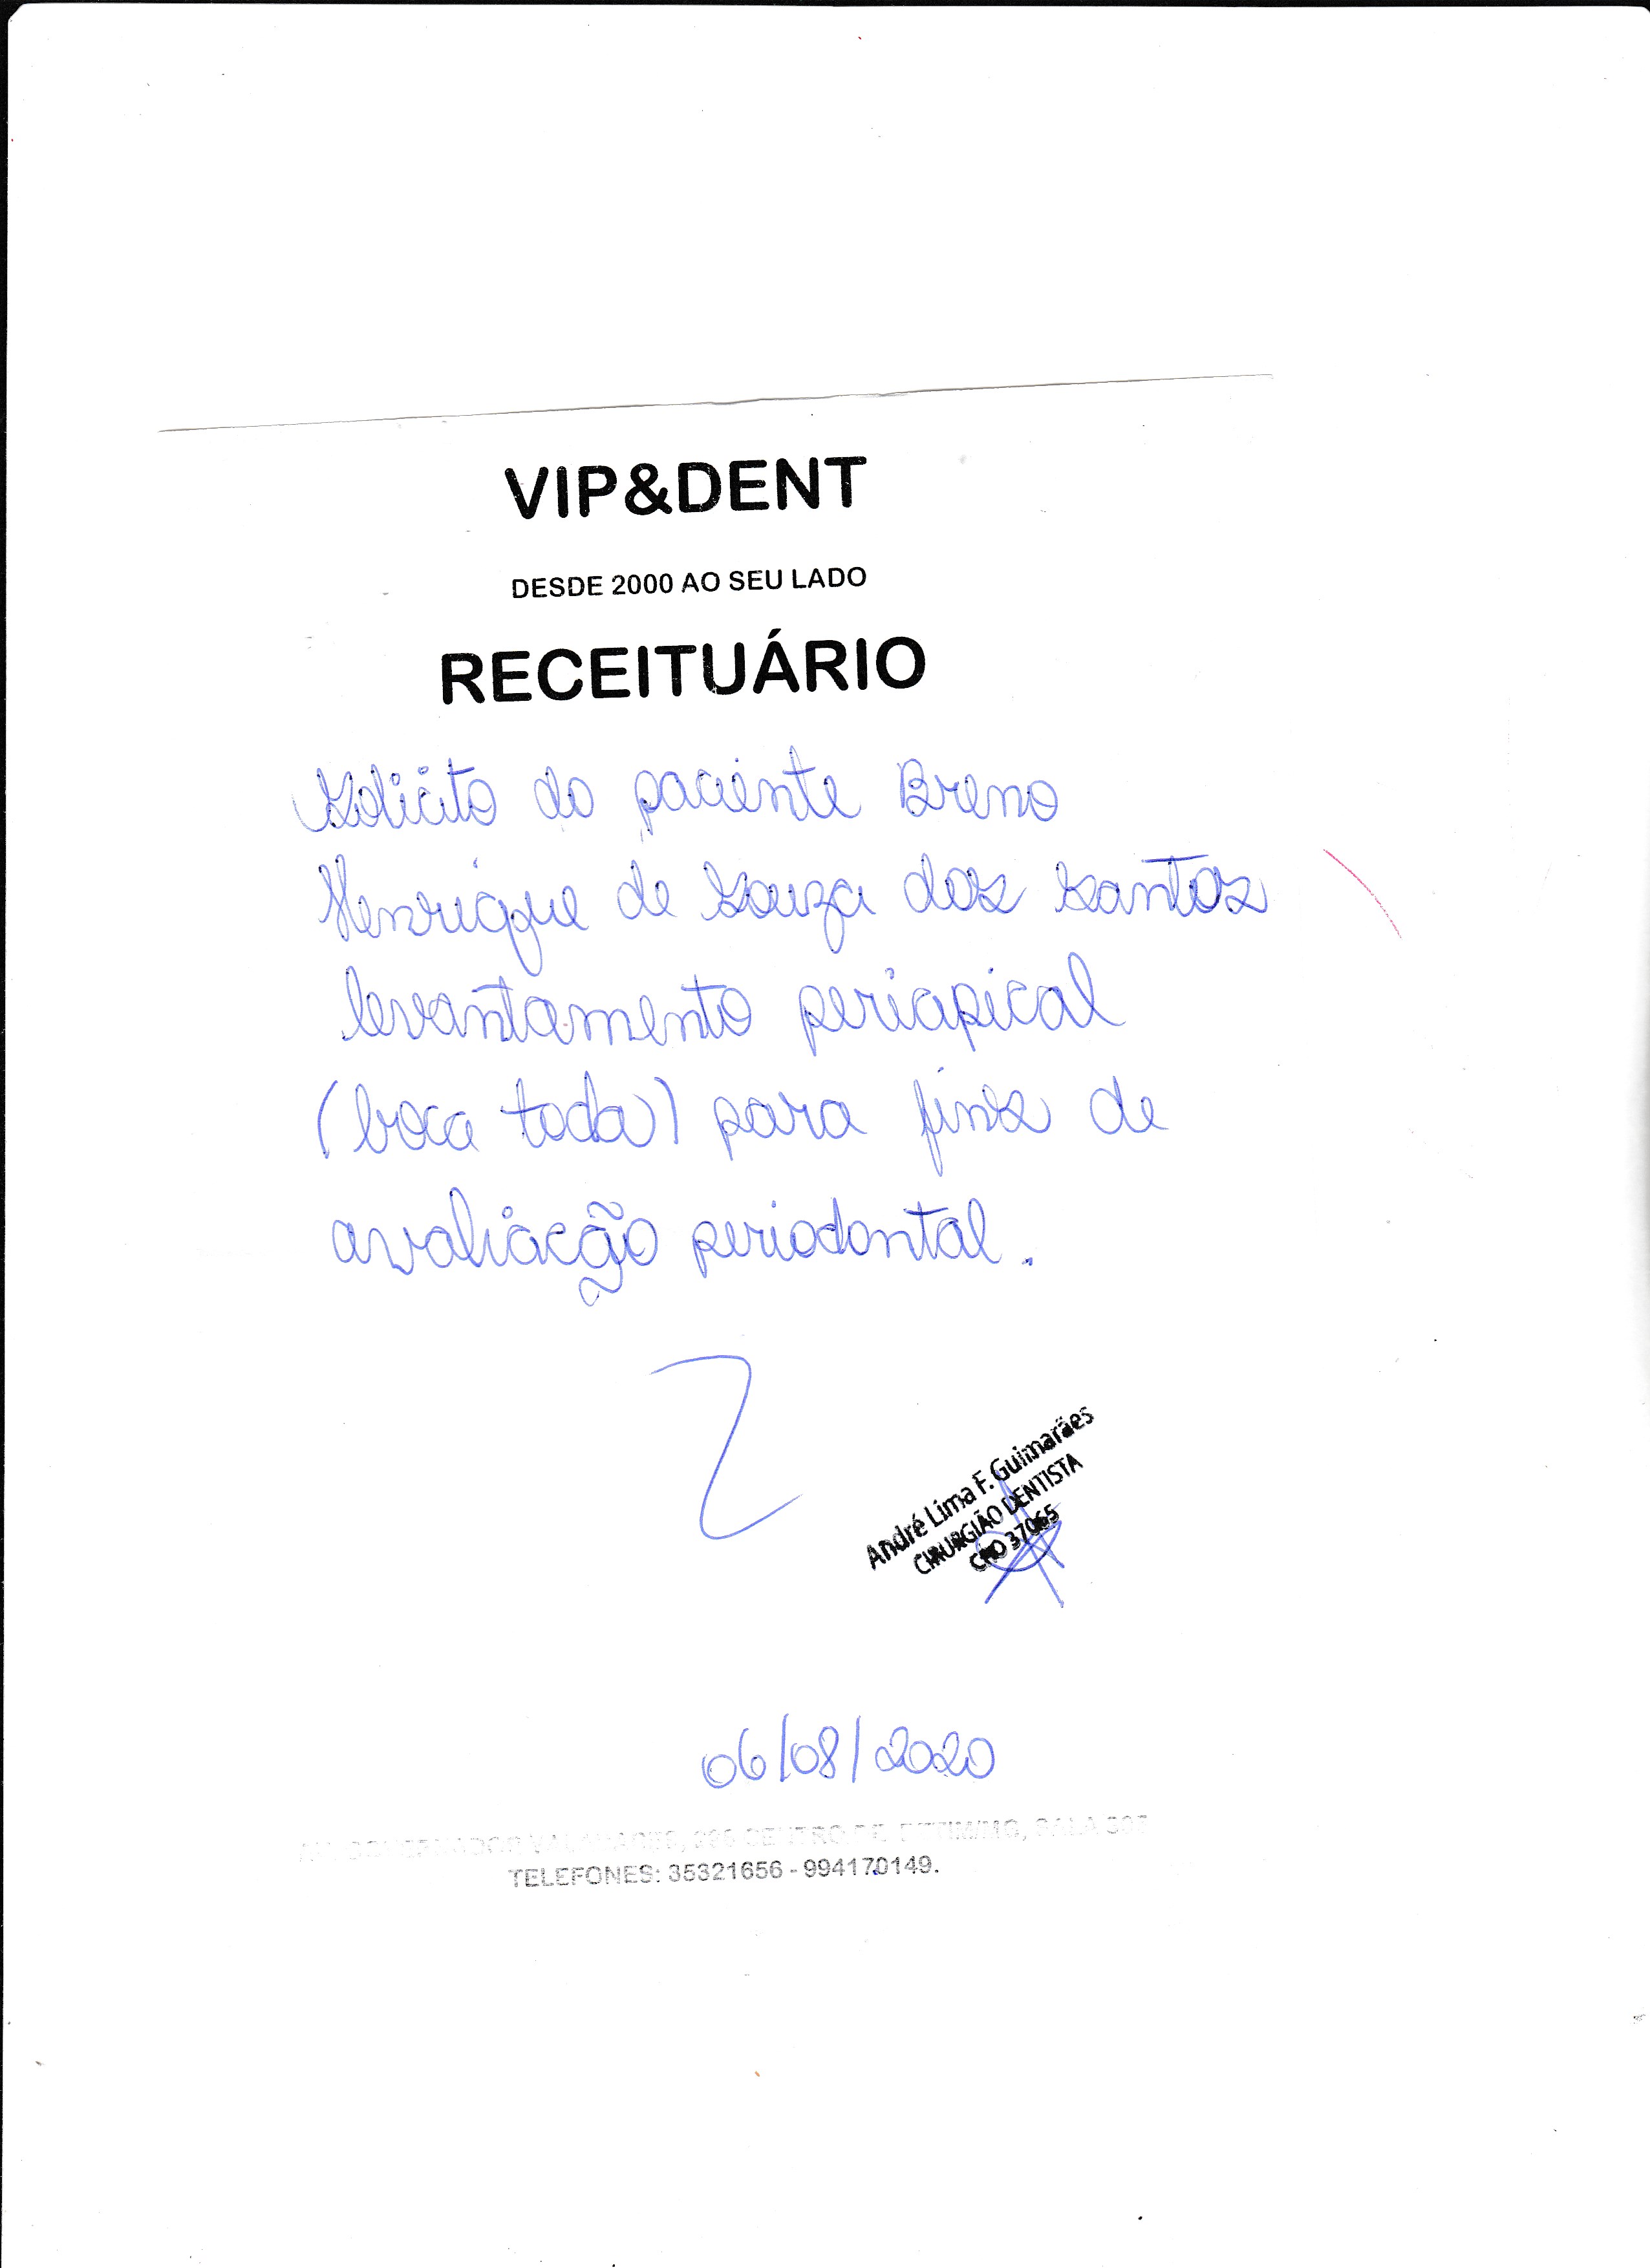 VIP&DENT
DESDE 2000 AO SEU LADO
RECEITUÁRIO
Solicito do paciente Breno
Henrique de Souza dos Santos
levantamento periapical
(boca toda) para fins de
avaliação periodontal.
André Lima F. Guimarães
CIRURGIÃO DENTISTA
CRO 37065
06/08/2020
TELEFONES: 35321656 - 994170149.